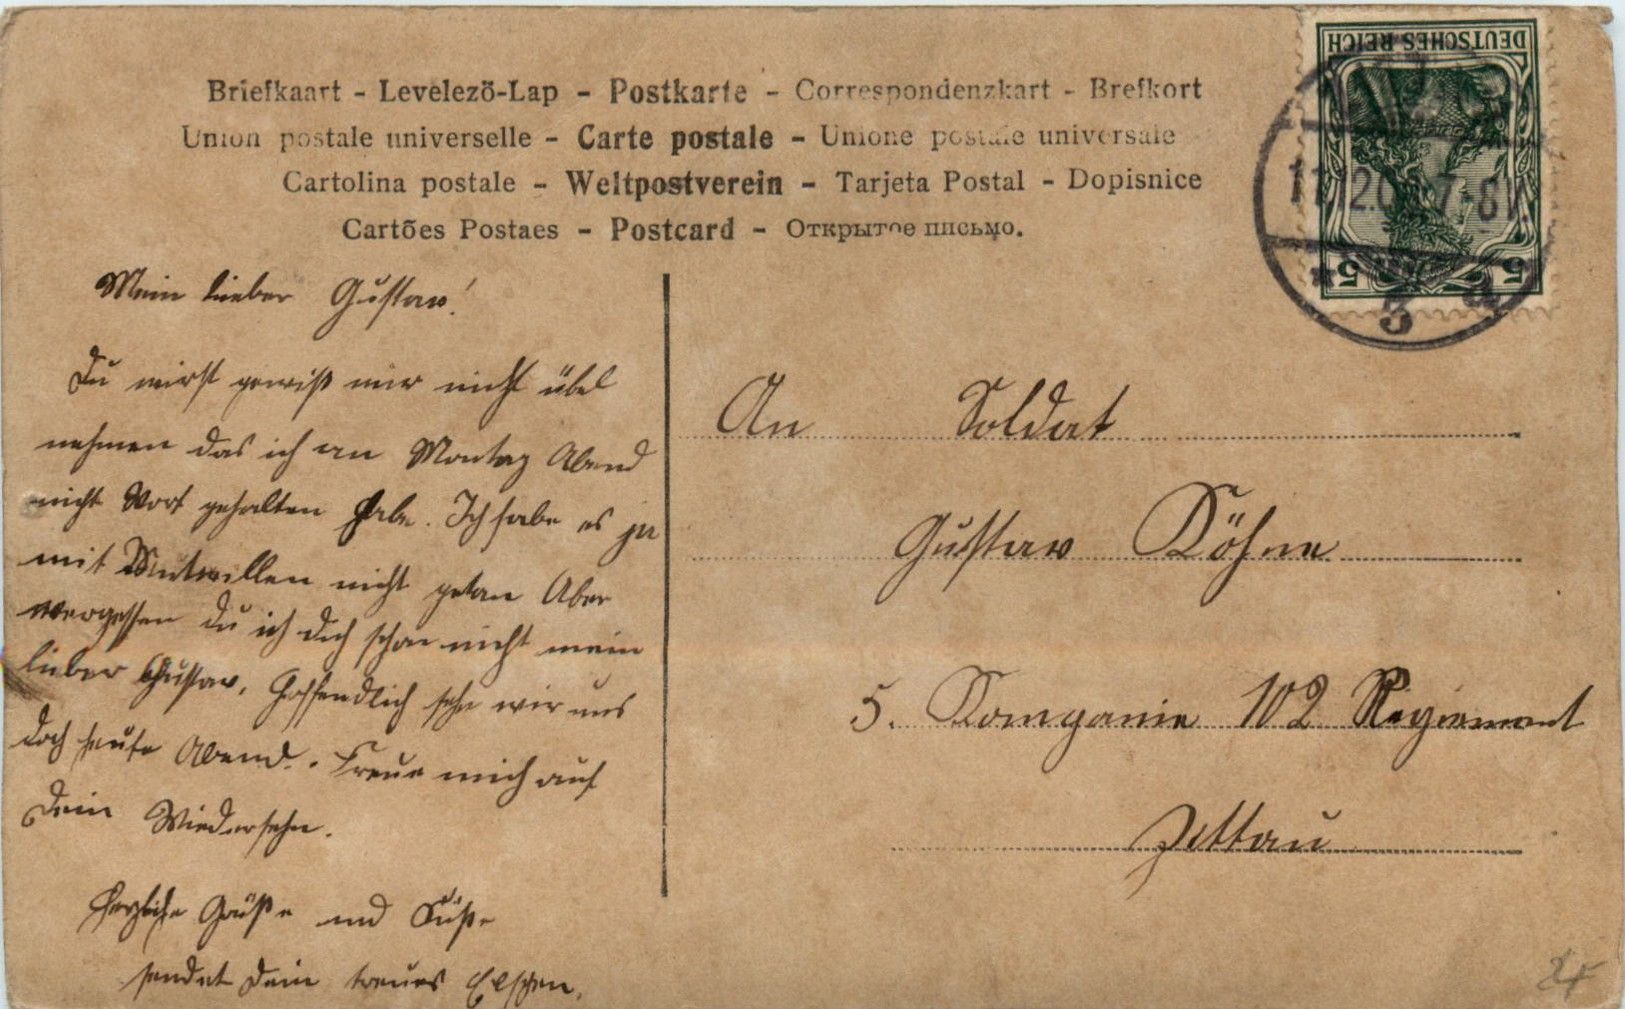 Briefkaart - Levelezö-Lap - Postkarte - Correspondenzkart - Brefkort
Union postale universelle - Carte postale - Unione postale universale
Cartolina postale - Weltpostverein - Tarjeta Postal - Dopisnice
Cartões Postaes - Postcard - Открытое письмо.
DEUTSCHES REICH
5 5
Mein lieber Gustav!
Du wirst gewiß mir nicht übel
nehmen das ich am Montag Abend
nicht Wort gehalten habe. Ich habe es ja
mit Mutwillen nicht getan Aber
vergessen du ich dich schon nicht mein
lieber Gustav, hoffendlich sehn wir uns
doch heute Abend. Freue mich auf
Dein Wiedersehn.
Herzliche Grüße und Küße
sendet Dein treues Elschen.
An Soldat
Gustav Köhne
5. Kompanie 102 Regiement
Zittau